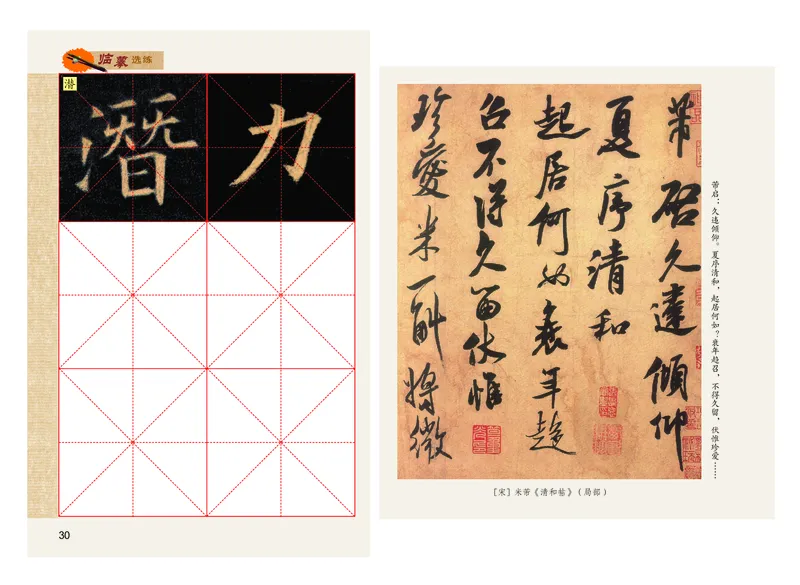 临摹选练
潜
潛力
30
芾啓久違傾仰
夏序清和
起居何如衰年趨
召不得久留伏惟
珍愛米一斛將微
芾启：久违倾仰。夏序清和，起居何如？衰年趋召，不得久留，伏惟珍爱……
［宋］米芾《清和帖》（局部）